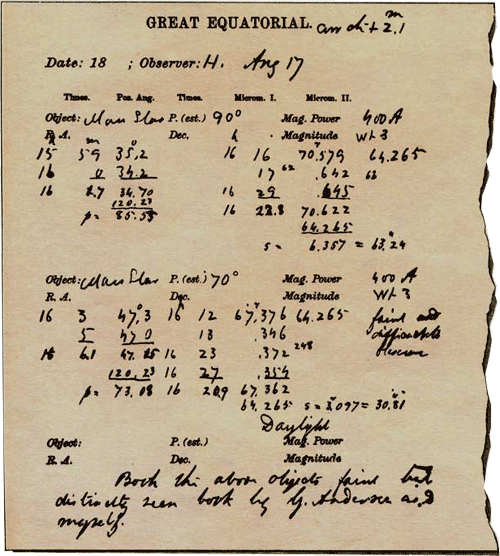 GREAT EQUATORIAL.
Date: 18 ; Observer: H. Aug 17
Times. Pos. Ang. Times. Microm. I. Microm. II.
Object: Mars Star P. (est.) 90° Mag. Power 400 A
R. A. Dec. h Magnitude Wt 3
15 59 35,2 16 16 70,579 64.265
16 0 34.2 17 .642
16 2.7 34.70 16 29 .645
120.23 16 22.8 70.622
p = 85.53 64.265
s = 6.357 = 63.24
Object: Mars Star P. (est.) 70° Mag. Power 400 A
R. A. Dec. Magnitude Wt 3
16 3 47,3 16 12 67,376 64.265 faint and
5 47 0 13 .346 difficult to
16 6.1 47.25 16 23 .372 observe
120,23 16 27 .354
p = 73.08 16 20.9 67.362
64.265 s = 3,097 = 30.81
Daylight
Object: P. (est.) Mag. Power
R. A. Dec. Magnitude
Both the above objects faint but
distinctly seen both by G. Anderson and
myself.